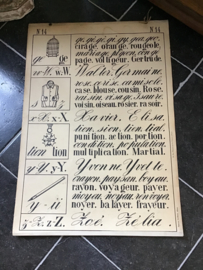 N 14 N 14
ge. gé. gi. gy. gea. geo.
cirage. orange. rougeole.
mariage. pigeon. singe
ge ge page. voltigeur. Gertrude.
w-W. w.W. Walter. Germaine
rose. cerise. camisole.
case. blouse. cousin. Rose.
raisin. visage.
s s voisin. oiseau. rosier. rasoir.
x-X. x-X. Xavier. Elisa.
tion. sion. tial.
punition. action. portion.
condition. population.
tion tion multiplication. Martial.
y-Y. y-Y. Yvonne. Yvette.
crayon. paysan. loyau.
rayon. voyageur. payer.
moyen. noyau.
y - ii noyer. balayer. frayeur.
z-Z. z-Z. Zoé. Zélia.